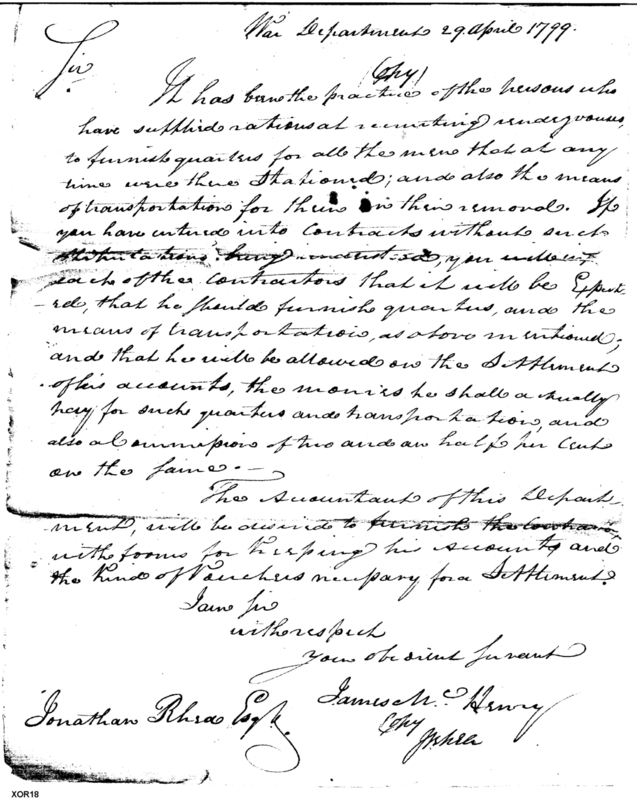 War Department 29 April 1799.
(Copy)
Sir
It has been the practice of the persons who
have supplied rations at recruiting rendezvouses,
to furnish quarters for all the men that at any
time were there Stationed; and also the means
of transportation for them on their removal. If
you have entered into Contracts without such
stipulations being understood, you will
each of the Contractors that it will be Expect-
-ed, that he should furnish quarters, and the
means of transportation, as above mentioned;
and that he will be allowed on the Settlement
of his accounts, the monies he shall actually
pay for such quarters and transportation, and
also a Commission of two and an half per Cent
on the same.—
The Accountant of this Depart-
ment, will be desired to furnish the Contractor
with forms for keeping his Accounts and
the kind of Vouchers necessary for a Settlement.
I am Sir
with respect
your obedient Servant
James McHenry
Jonathan Rhea Esqr.
Copy
JRhea
XOR18